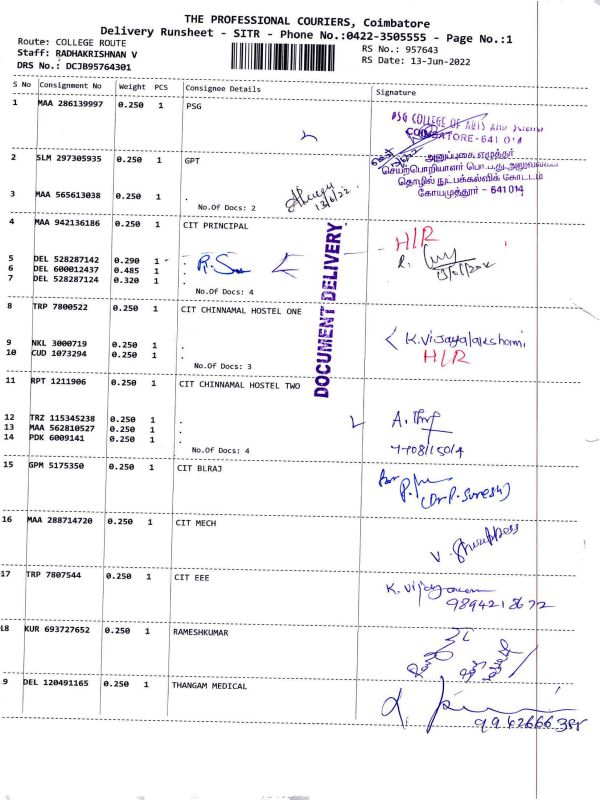 THE PROFESSIONAL COURIERS, Coimbatore
Delivery Runsheet - SITR - Phone No.:0422-3505555 - Page No.:1
Route: COLLEGE ROUTE
RS No.: 957643
Staff: RADHAKRISHNAN V
RS Date: 13-Jun-2022
DRS No.: DCJB95764301
S No Consignment No Weight PCS Consignee Details Signature
1 MAA 286139997 0.250 1 PSG
PSG COLLEGE OF ARTS AND SCIENCE
COIMBATORE-641 014
2 SLM 297305935 0.250 1 GPT
அனுப்புகை எழுத்தர்
செயற்பொறியாளர் பொ.ப.து.அலுவலகம்
தொழில் நுட்பக்கல்விக் கோட்டம்
கோயமுத்தூர் - 641 014
3 MAA 565613038 0.250 1 .
No.Of Docs: 2
13/6/22
4 MAA 942136186 0.250 1 CIT PRINCIPAL
H/R
5 DEL 528287142 0.290 1 .
6 DEL 600012437 0.485 1 .
7 DEL 528287124 0.320 1 .
No.Of Docs: 4
DOCUMENT DELIVERY
8 TRP 7800522 0.250 1 CIT CHINNAMAL HOSTEL ONE
K.Vijayalakshmi
H/R
9 NKL 3000719 0.250 1 .
10 CUD 1073294 0.250 1 .
No.Of Docs: 3
11 RPT 1211906 0.250 1 CIT CHINNAMAL HOSTEL TWO
12 TRZ 115345238 0.250 1 .
13 MAA 562810527 0.250 1 .
14 PDK 6009141 0.250 1 .
No.Of Docs: 4
15 GPM 5175350 0.250 1 CIT BLRAJ
(Dr P. Suresh)
16 MAA 288714720 0.250 1 CIT MECH
17 TRP 7807544 0.250 1 CIT EEE
9894218672
18 KUR 693727652 0.250 1 RAMESHKUMAR
9 DEL 120491165 0.250 1 THANGAM MEDICAL